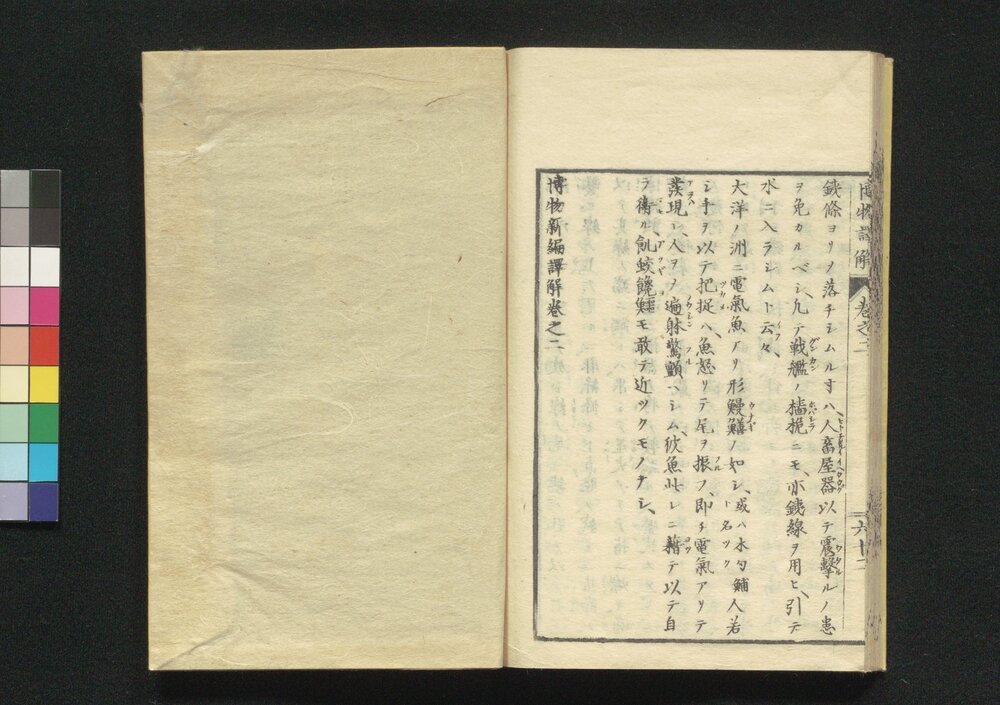 博物譯解 卷之二 六十二
鐵條ヨリノ落チシムル寸ハ、人畜屋器以テ震擊ルノ患
ヲ免カルベシ、凡テ戰艦ノ檣桅ニモ、亦鐵線ヲ用ヒ、引テ
水ニ入ラシムト云々、
大洋ノ洲ニ電氣魚アリ形鰻鱔ノ如シ、或ハ木勺鯆ト名ツク人若
シ手ヲ以テ把捉ハ魚怒リテ尾ヲ振フ、即チ電氣アリテ
發現シ、人ヲノ遍躰驚顫ヘシム、彼魚此レニ藉テ以テ自
ラ衛ル飢蛟饞鱷モ敢テ近ツクモノナシ、
博物新編譯解卷之二